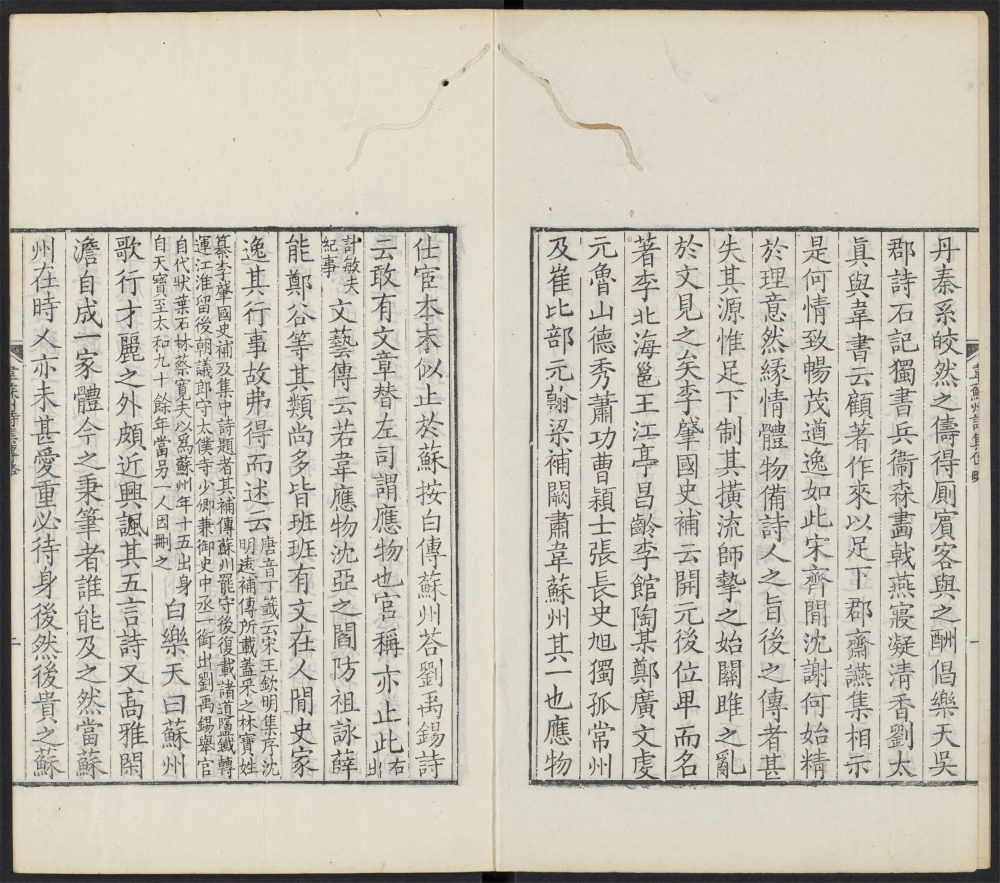 丹秦系皎然之儔得厠賓客與之酬倡樂天吳
郡詩石記獨書兵衞森畫戟燕寢凝清香劉太
眞與韋書云顧著作來以足下郡齋讌集相示
是何情致暢茂遒逸如此宋齊閒沈謝何始精
於理意然緣情體物備詩人之旨後之傳者甚
失其源惟足下制其橫流師摯之始關雎之亂
於文見之矣李肇國史補云開元後位卑而名
著李北海邕王江寧昌齡李館陶某鄭廣文虔
元魯山德秀蕭功曹穎士張長史旭獨孤常州
及崔比部元翰梁補闕肅韋蘇州其一也應物
仕宦本末似止於蘇按白傳蘇州荅劉禹錫詩
云敢有文章替左司謂應物也官稱亦止此右出
計敏夫紀事
文藝傳云若韋應物沈亞之閻防祖詠薛
能鄭谷等其類尚多皆班班有文在人閒史家
逸其行事故弗得而述云
唐音丁籤云宋王欽明集序沈
明遠補傳所載蓋采之林寶姓
纂李肇國史補及集中詩題者其補傳蘇州罷守後復載諸道鹽鐵轉
運江淮留後朝議郎守太僕寺少卿兼御史中丞一銜出劉禹錫舉官
自代狀葉石林蔡寬夫以爲蘇州年十五出身
自天寶至太和九十餘年當另一人因刪之
白樂天曰蘇州
歌行才麗之外頗近興諷其五言詩又高雅閑
澹自成一家體今之秉筆者誰能及之然當蘇
州在時人亦未甚愛重必待身後然後貴之蘇
韋蘇州詩集傳略
一
韋蘇州詩集傳略
二